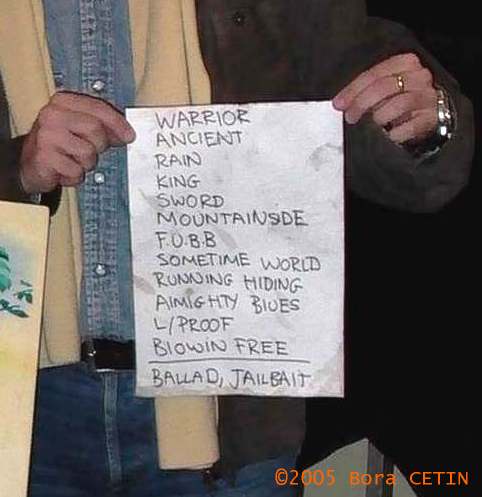 WARRIOR
ANCIENT
RAIN
KING
SWORD
MOUNTAINSIDE
F.U.B.B
SOMETIME WORLD
RUNNING HIDING
AlMIGHTY BlUES
L/PROOF
BlOWIN FREE
BALLAD, JAILBAIT
©2005 Bora CETIN